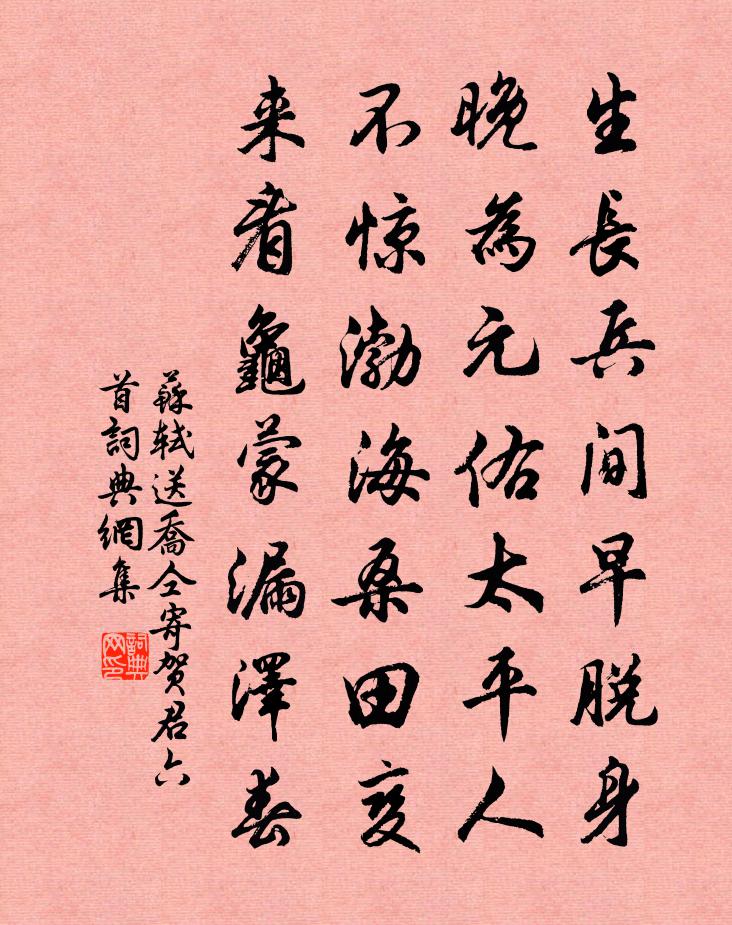 生長兵間早脱身
晚為元佑太平人
不惊渤海桑田变
来看龜蒙漏澤春
蘇軾送喬仝寄贺君六
首詞典網集
詞典網印